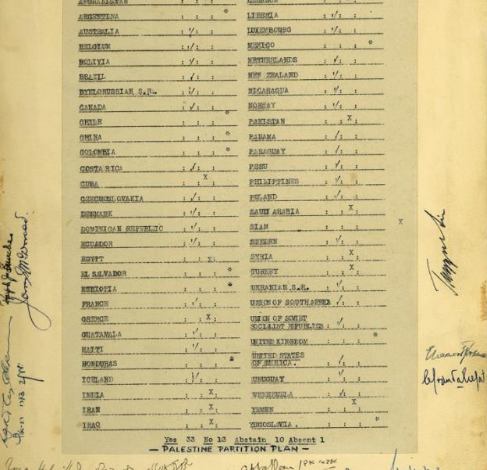 AFGHANISTAN
ARGENTINA : : : °
AUSTRALIA : √: :
BELGIUM : √: :
BOLIVIA : √: :
BRAZIL : √: :
BYELORUSSIAN S.R. : √: :
CANADA : √: :
CHILE : : : °
CHINA : : : °
COLOMBIA : : : °
COSTA RICA : √: :
CUBA : : X :
CZECHOSLOVAKIA : √: :
DENMARK : √: :
DOMINICAN REPUBLIC : √: :
ECUADOR : √: :
EGYPT : : X:
EL SALVADOR : : : °
ETHIOPIA : : : °
FRANCE : √: :
GREECE : : X:
GUATAMALA : √: :
HAITI : √: :
HONDURAS : : : °
ICELAND : √: :
INDIA : : X:
IRAN : : X:
IRAQ : : X:
LEBANON
LIBERIA : √: :
LUXEMBOURG : √: :
MEXICO : : : °
NETHERLANDS : √: :
NEW ZEALAND : √: :
NICARAGUA : √: :
NORWAY : √: :
PAKISTAN : : X :
PANAMA : √: :
PARAGUAY : √: :
PERU : √: :
PHILIPPINES : √: :
POLAND : √: :
SAUDI ARABIA : : X :
SIAM : : : X
SWEDEN : √: :
SYRIA : : X :
TURKEY : : X :
UKRANIAN S.R. : √: :
UNION OF SOUTH AFRICA : √: :
UNION OF SOVIET
SOCIALIST REPUBLICS : √: :
UNITED KINGDOM : : : °
UNITED STATES
OF AMERICA. : √: :
URUGUAY : √: :
VENEZUELA : √: :
YEMEN : : X :
YUGOSLAVIA : : : °
Yes 33 No 13 Abstain 10 Absent 1
— PALESTINE PARTITION PLAN —